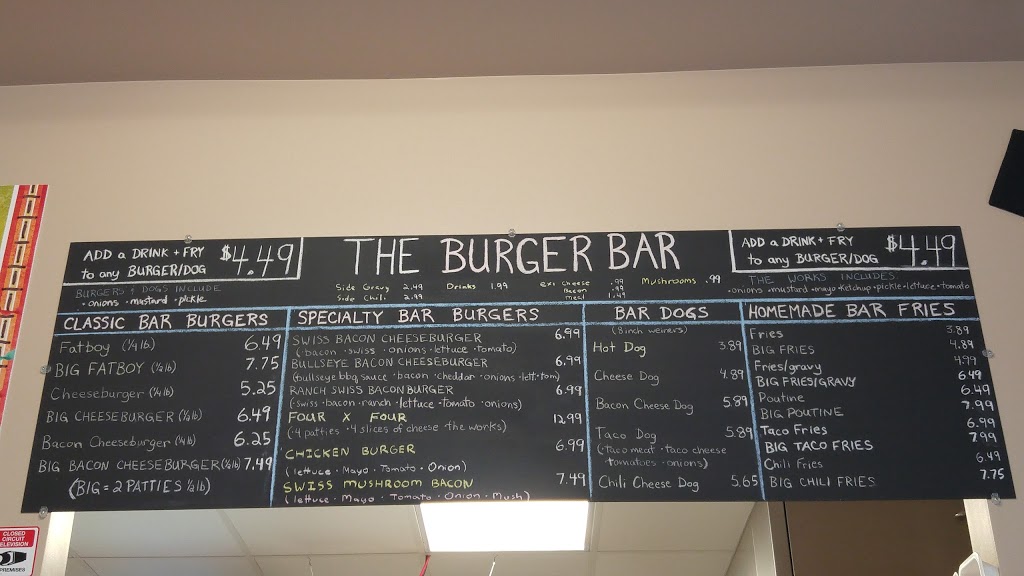 THE BURGER BAR
ADD a DRINK + FRY
to any BURGER/DOG
$4.49
BURGERS + DOGS INCLUDE
• onions • mustard • pickle
Side Gravy 2.49
Side Chili 2.99
Drinks 1.99
ex: Cheese .99
Bacon .99
meat 1.49
Mushrooms .99
ADD a DRINK + FRY
to any BURGER/DOG
$4.49
THE WORKS INCLUDES
• onions • mustard • mayo • ketchup • pickle • lettuce • tomato
CLASSIC BAR BURGERS
Fatboy (1/4 lb) 6.49
BIG FATBOY (1/2 lb) 7.75
Cheeseburger (1/4 lb) 5.25
BIG CHEESEBURGER (1/2 lb) 6.49
Bacon Cheeseburger (1/4 lb) 6.25
BIG BACON CHEESEBURGER (1/2 lb) 7.49
(BIG = 2 PATTIES 1/2 lb)
SPECIALTY BAR BURGERS
SWISS BACON CHEESEBURGER 6.99
(• bacon • swiss • onions • lettuce • tomato)
BULLSEYE BACON CHEESEBURGER 6.99
(bullseye bbq sauce • bacon • cheddar • onions • lett • tom)
RANCH SWISS BACON BURGER 6.99
(• swiss • bacon • ranch • lettuce • tomato • onions)
FOUR X FOUR 12.99
(4 patties • 4 slices of cheese • the works)
CHICKEN BURGER 6.99
(lettuce • Mayo • Tomato • Onion)
SWISS MUSHROOM BACON 7.49
(lettuce • Mayo • Tomato • Onion • Mush)
BAR DOGS
(8 inch weiners)
Hot Dog 3.89
Cheese Dog 4.89
Bacon Cheese Dog 5.89
Taco Dog 5.89
(taco meat • taco cheese
tomatoes • onions)
Chili Cheese Dog 5.65
HOMEMADE BAR FRIES
Fries 3.89
BIG FRIES 4.89
Fries/gravy 4.99
BIG FRIES/GRAVY 6.49
Poutine 6.49
BIG POUTINE 7.99
Taco Fries 6.99
BIG TACO FRIES 7.99
Chili Fries 6.49
BIG CHILI FRIES 7.75
CLOSED
CIRCUIT
TELEVISION
PREMISES